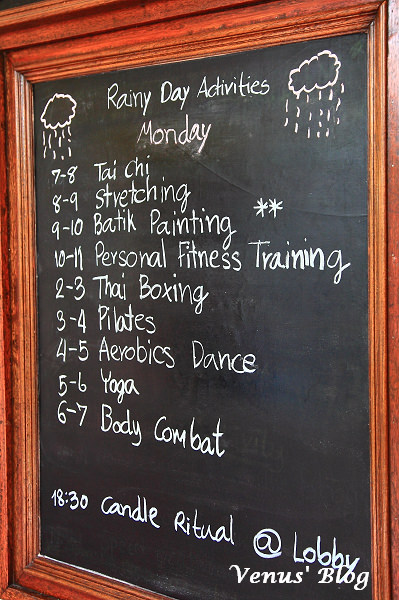 Rainy Day Activities
Monday
7-8 Tai Chi
8-9 Stretching
9-10 Batik Painting **
10-11 Personal Fitness Training
2-3 Thai Boxing
3-4 Pilates
4-5 Aerobics Dance
5-6 Yoga
6-7 Body Combat
18:30 Candle Ritual @ Lobby
Venus' Blog